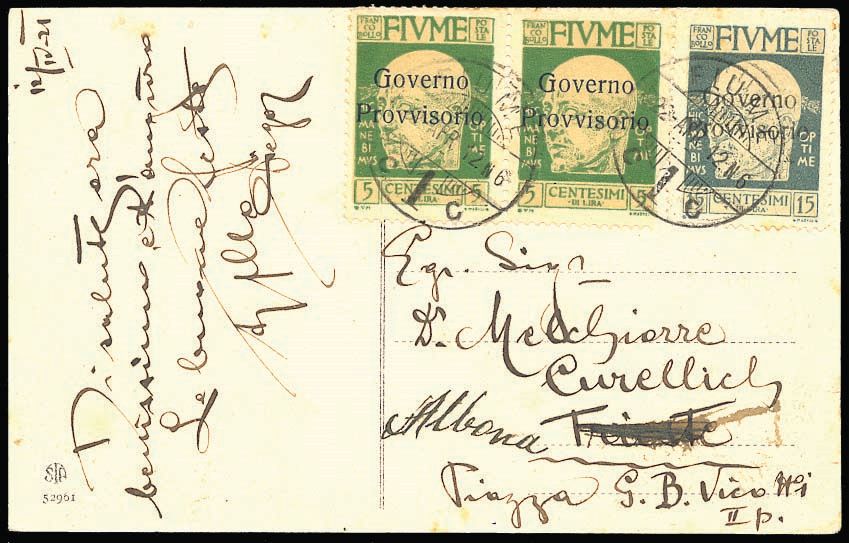 12/IV-21
Di salute ora
benissimo e t'auguro
Le buone feste
FRANCOBOLLO FIVME POSTALE
Governo
Provvisorio
HIC MANEBIMVS OPTIME
5 CENTESIMI 5
DI LIRA
FRANCOBOLLO FIVME POSTALE
Governo
Provvisorio
HIC MANEBIMVS OPTIME
5 CENTESIMI 5
DI LIRA
FRANCOBOLLO FIVME POSTALE
Governo
Provvisorio
HIC MANEBIMVS OPTIME
CENTESIMI 15
DI LIRA
FIUME
APR 12 N6
1 C
FIUME
APR 12 N6
1 C
Egr. Sigr
Dr. Melchiorre
Curellich
Albona Trieste
Piazza G. B. Vico No i
II p.
STA
52961